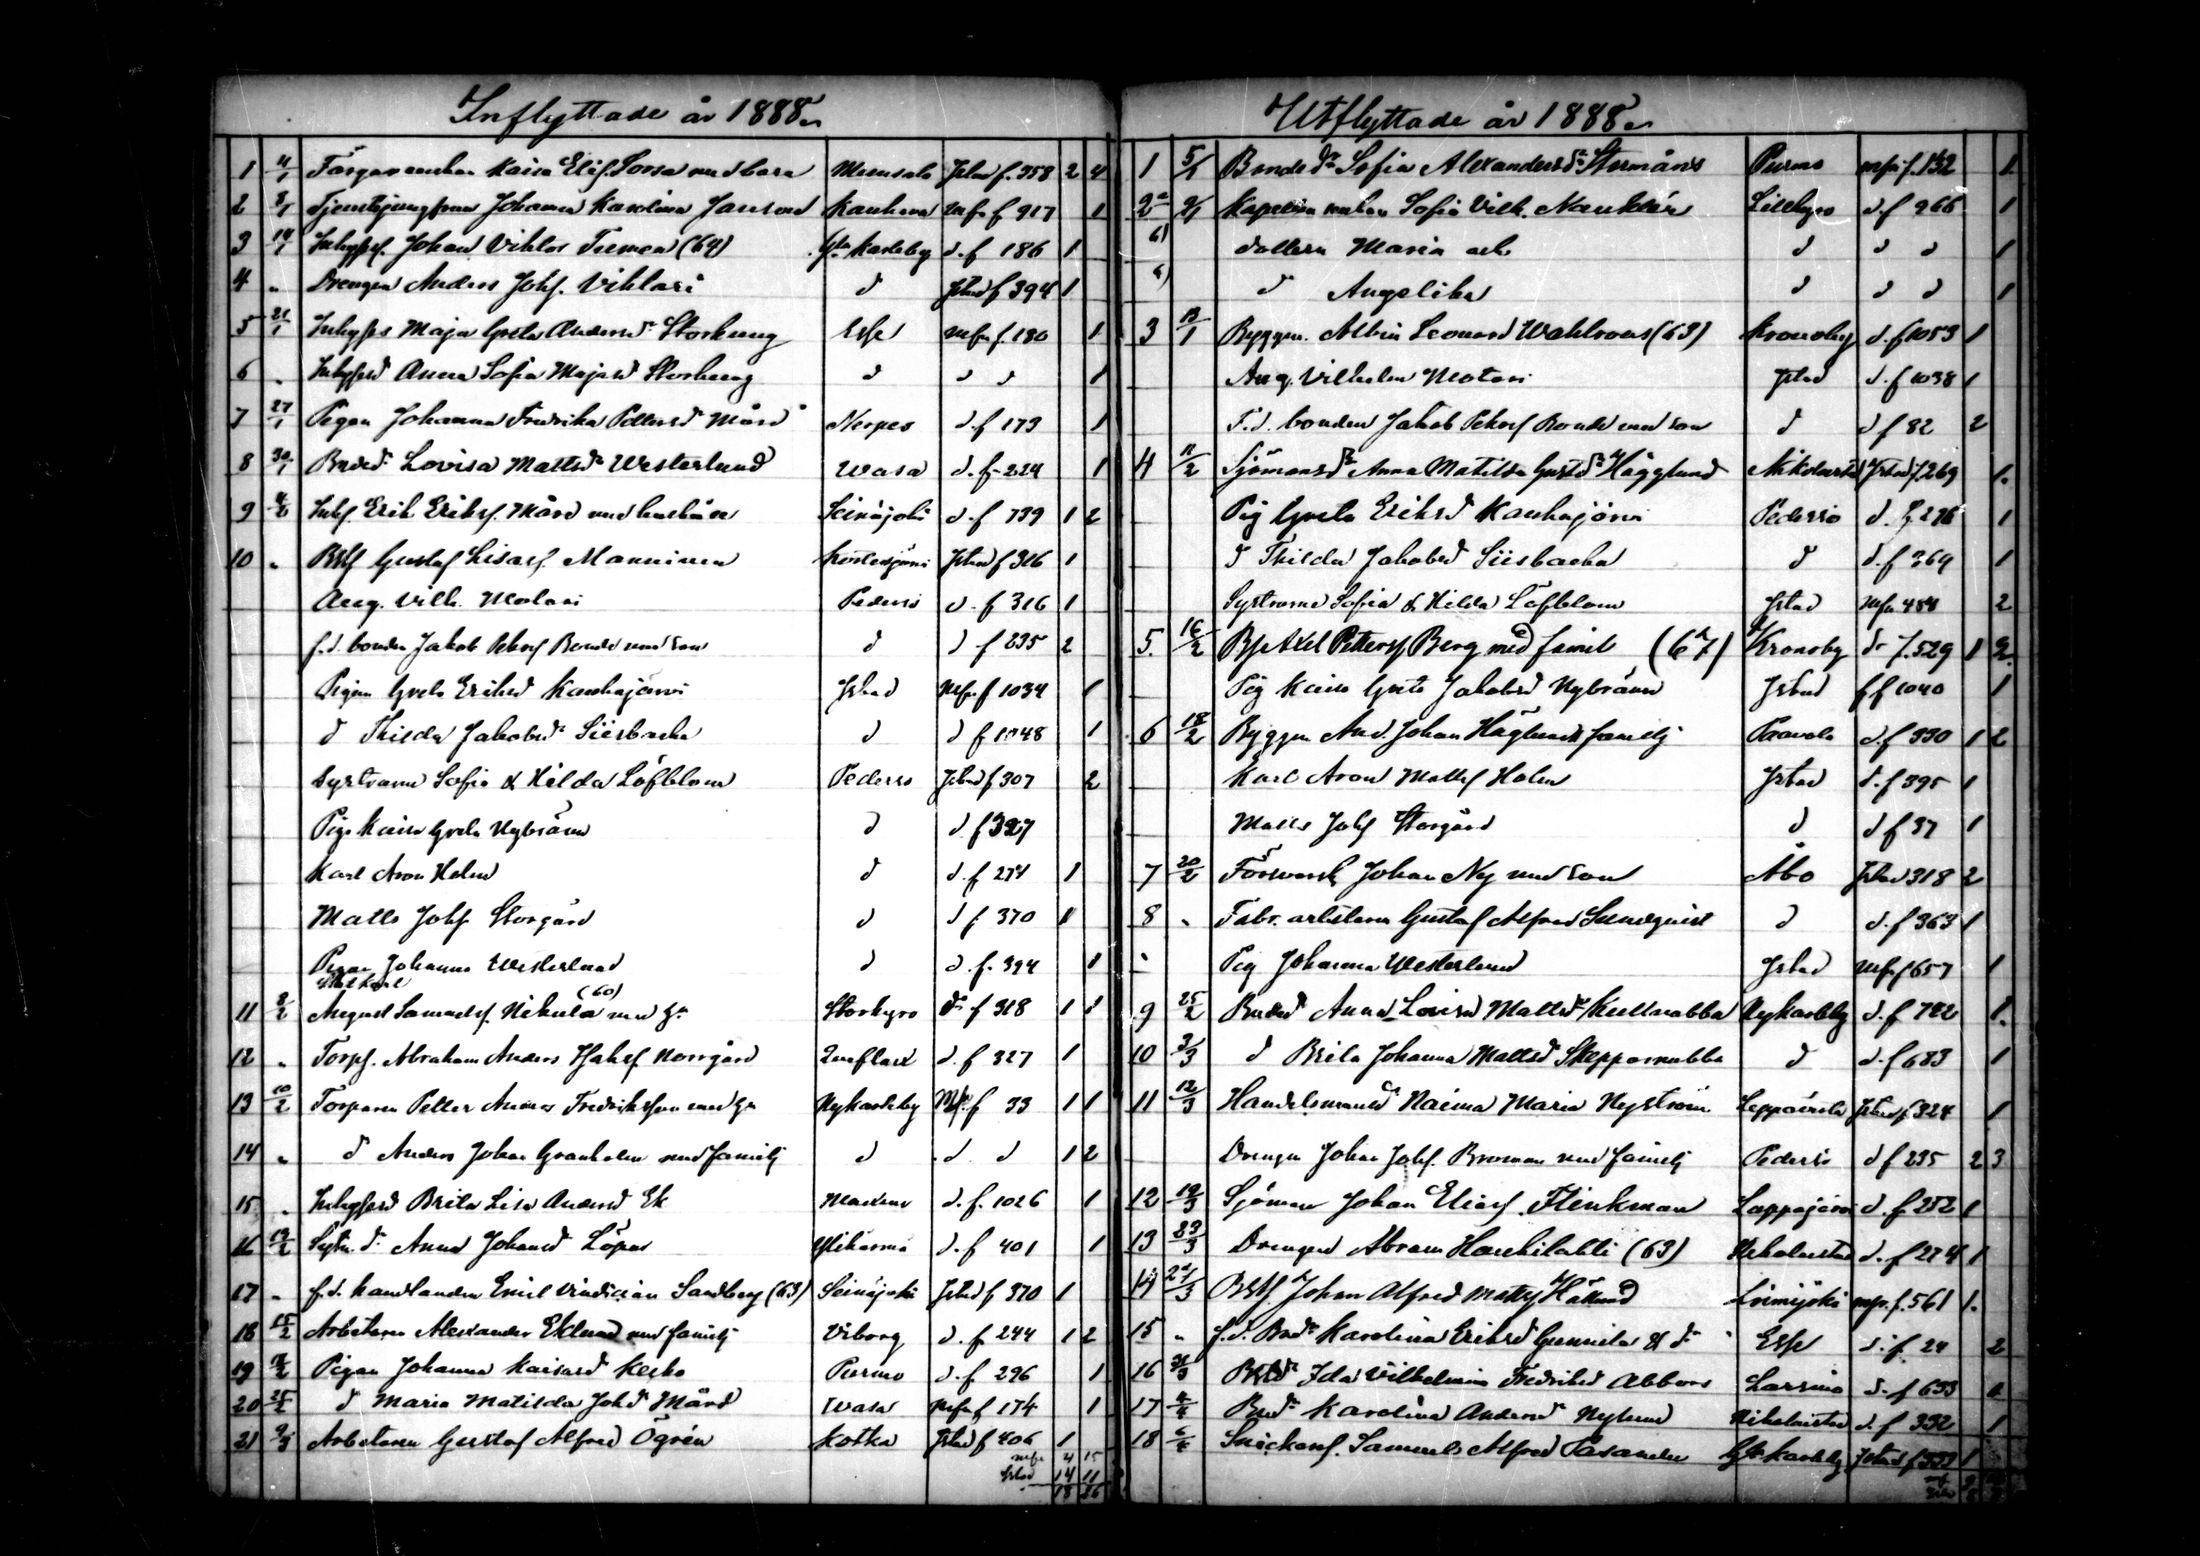 Inflyttade år 1888.
1 4/1 Färgareenkan Kaisa Elis. Sorsa med barn Munsala Jstad f. 358 2 4
2 Tjenstejungfrun Johanna Karolina Jansson Kauhava mfr f 917 1
3 14/1 Inhysf. Johan Viktor Tiemon (64) G:la Karleby d. f 186 1
4 " Drengen Anders Johs. Viklari d Jstad f 394 1
5 21/1 Inhyses Maja Greta Andersd:r Storkung Esse mfr f. 180 1
6 " Inhysesd Anna Sofia Majasd Storkung d d d 1
7 27/1 Pigan Johanna Fredrika Pettersd:r Mård Nerpes d. f 173 1
8 30/1 Bonded:r Lovisa Mattsd:r Westerlund Wasa d. f 224 1
9 Inhs. Erik Eriks. Mård med hustru Seinäjoki d. f 739 1 2
10 " Gustaf Lisas. Manninen Kortesjärvi Jstad f 316 1
Aug. Vilh. Molari Pedersö d. f 316 1
f.d. bonden Jakob Peters Bonde med son d d f 235 2
Pigan Greta Eriksd Kauhajärvi Jstad mfr. f 1034 1
d Thilda Jakobsd:r Siisbacka d d f 1048 1
Systrarna Sofia & Hilda Löfblom Pedersö Jstad f 307 2
Piga Kaisa Greta Nybränn d d. f 327
Karl Aron Holm d d. f 274 1
Matts Johs Storgård d d f 370 1
Pigan Johanna Westerlund d d. f. 394 1
11 8/2 August Samuels. Nikula (60) med h:u Storkyro d:o f 318 1 1
12 " Torps. Abraham Anders Norrgård Qveflax d. f 327 1
13 10/2 Torparen Petter Anders Fredriksson med h:u Nykarleby Mfr. f 33 1 1
14 " d Anders Johan Granholm med familj d d d 1 2
15 " Inhysesd Brita Lisa Andersd Ek Maxmo d. f. 1026 1
16 Anna Johansd Löpar Ylihärmä d. f 401 1
17 " f.d. handlanden Emil Vindician Sandberg (63) Seinäjoki Jstad f 370 1
18 15/2 Arbetaren Alexander Eklund med familj Viborg d. f 244 1 2
19 Pigan Johanna Kaisasd Kecko Purmo d. f 296 1
20 25/2 d Maria Matilda Johsd Mård Wasa mfr f 174 1
21 Arbetaren Gustaf Alfred Ögrén Kotka Jstad f 406 1
mfr 4 15
Jstad 14 11
18 26
Utflyttade år 1888.
1 5/1 Bonded:r Sofia Alexandersd:r Stormåns Purmo mfr f. 132 1
2 Kapellansenkan Sofia Vilh. Nauklér Lillkyro d. f 966 1
dottern Maria och d d d 1
d Angelika d d d 1
3 13/1 Byggm. Albin Leonard Wahlroos (63) Kronoby d. f 1053 1
Aug. Vilhelm Molari Jstad d. f 1038 1
F.d. bonden Jakob Peters Bonde med son d d f 82 2
4 11/2 Sjömansd:r Anna Matilda Gustd:r Hägglund Nikolaistad Jstad f. 269 1
Pig Greta Eriksd Kauhajärvi Pedersö d. f. 276 1
d Thilda Jakobsd Siisbacka d d. f 369 1
Systrarne Sofia & Hilda Löfblom Jstad mfr 484 2
5. 16/2 Axel Petters Berg med famil (67) Kronoby d:o f. 529 1 2
Pig Kaisa Greta Jakobsd Nybränn Jstad f 1040 1
6 18/2 Byggm And. Johan Häglund familj d. f 330 1 2
Karl Aron Matts Holm Jstad d. f 395 1
Matts Johs Storgård d d f 37 1
7 20/2 Johan Ny med son Åbo Jstad 318 2
8 " Fabr. arbetaren Gustaf Alfred Sundqvist d d. f 363 1
Pig Johanna Westerlund Jstad mfr f 657 1
9 25/2 Bonded Anna Lovisa Mattsd:r Kullnabba Nykarleby d. f 742 1
10 3/3 d Brita Johanna Mattsd Skepparnabba d d. f 683 1
11 12/3 Handelsmansd Naima Maria Nyström Leppävirta Jstad f 324 1
Drengen Johan Johs. Broman med familj Pedersö d f 235 2 3
12 19/3 Sjöman Johan Elias. Flinkman Lappajärvi d. f 252 1
13 23/3 Drengen Abram Haukilahti (63) Nikolaistad d. f 274 1
14 27/3 Johan Alfred Matts Hällund mfr. f. 561 1.
15 " f.d. Karolina Eriksd Gunnila & d:r Esse d. f. 24 2
16 31/3 Ida Vilhelmina Fredriksd Abbors Larsmo d. f 633 1
17 4/4 Karolina Andersd:r Nylund Nikolaistad d. f 332 1
18 6/4 Snickers. Samuel Alfred Casander G:la Karleby Jstad f 333 1